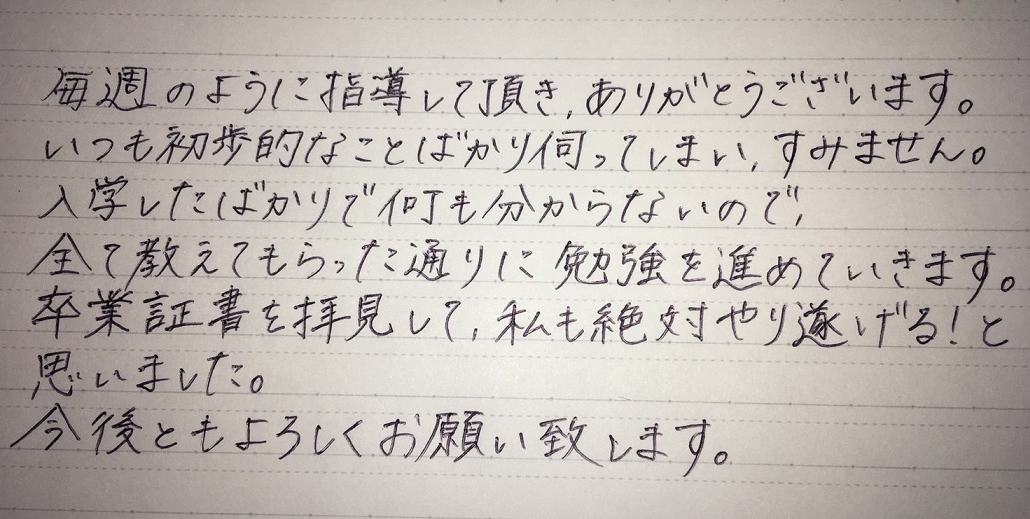 毎週のように指導して頂き、ありがとうございます。
いつも初歩的なことばかり伺ってしまい、すみません。
入学したばかりで何も分からないので、
全て教えてもらった通りに勉強を進めていきます。
卒業証書を拝見して、私も絶対やり遂げる！と
思いました。
今後ともよろしくお願い致します。